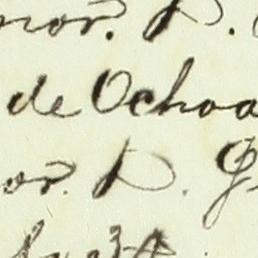 nor. D.
de Ochoa
or. D. G